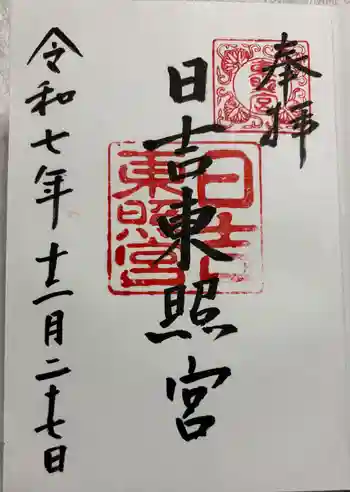 奉拝
日吉東照宮
令和七年十二月二十七日
日吉東照宮